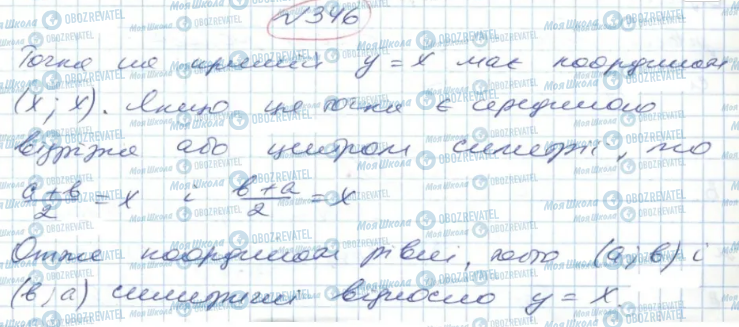 №346
Точка на прямій y = x має координати
(x; x). Якщо ця точка є серединою
відрізка або центром симетрії, то
a+b/2 = x і b+a/2 = x
Отже координати рівні, тобто (a; b) і
(b; a) симетричні відносно y = x.